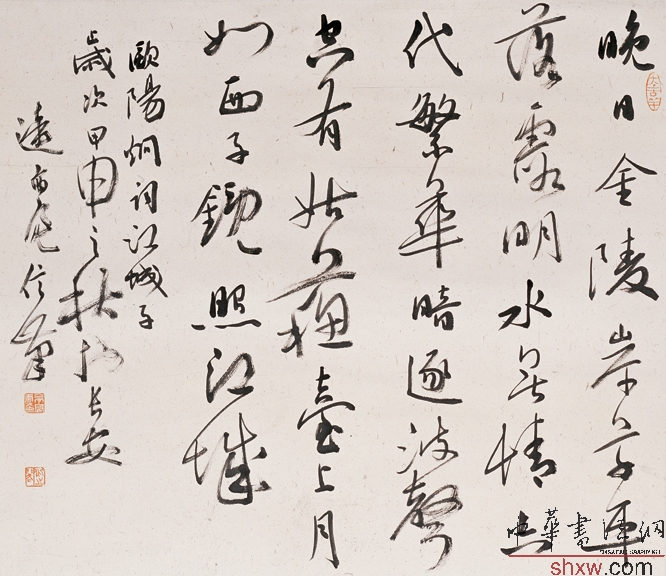 晚日金陵岸草平
落霞明水無情六
代繁華暗逐波聲
空有姑蘓臺上月
如西子鏡照江城
歐陽炯词江城子
歲次甲申之秋於長安
遠市庵信筆
中華書法網
shxw.com